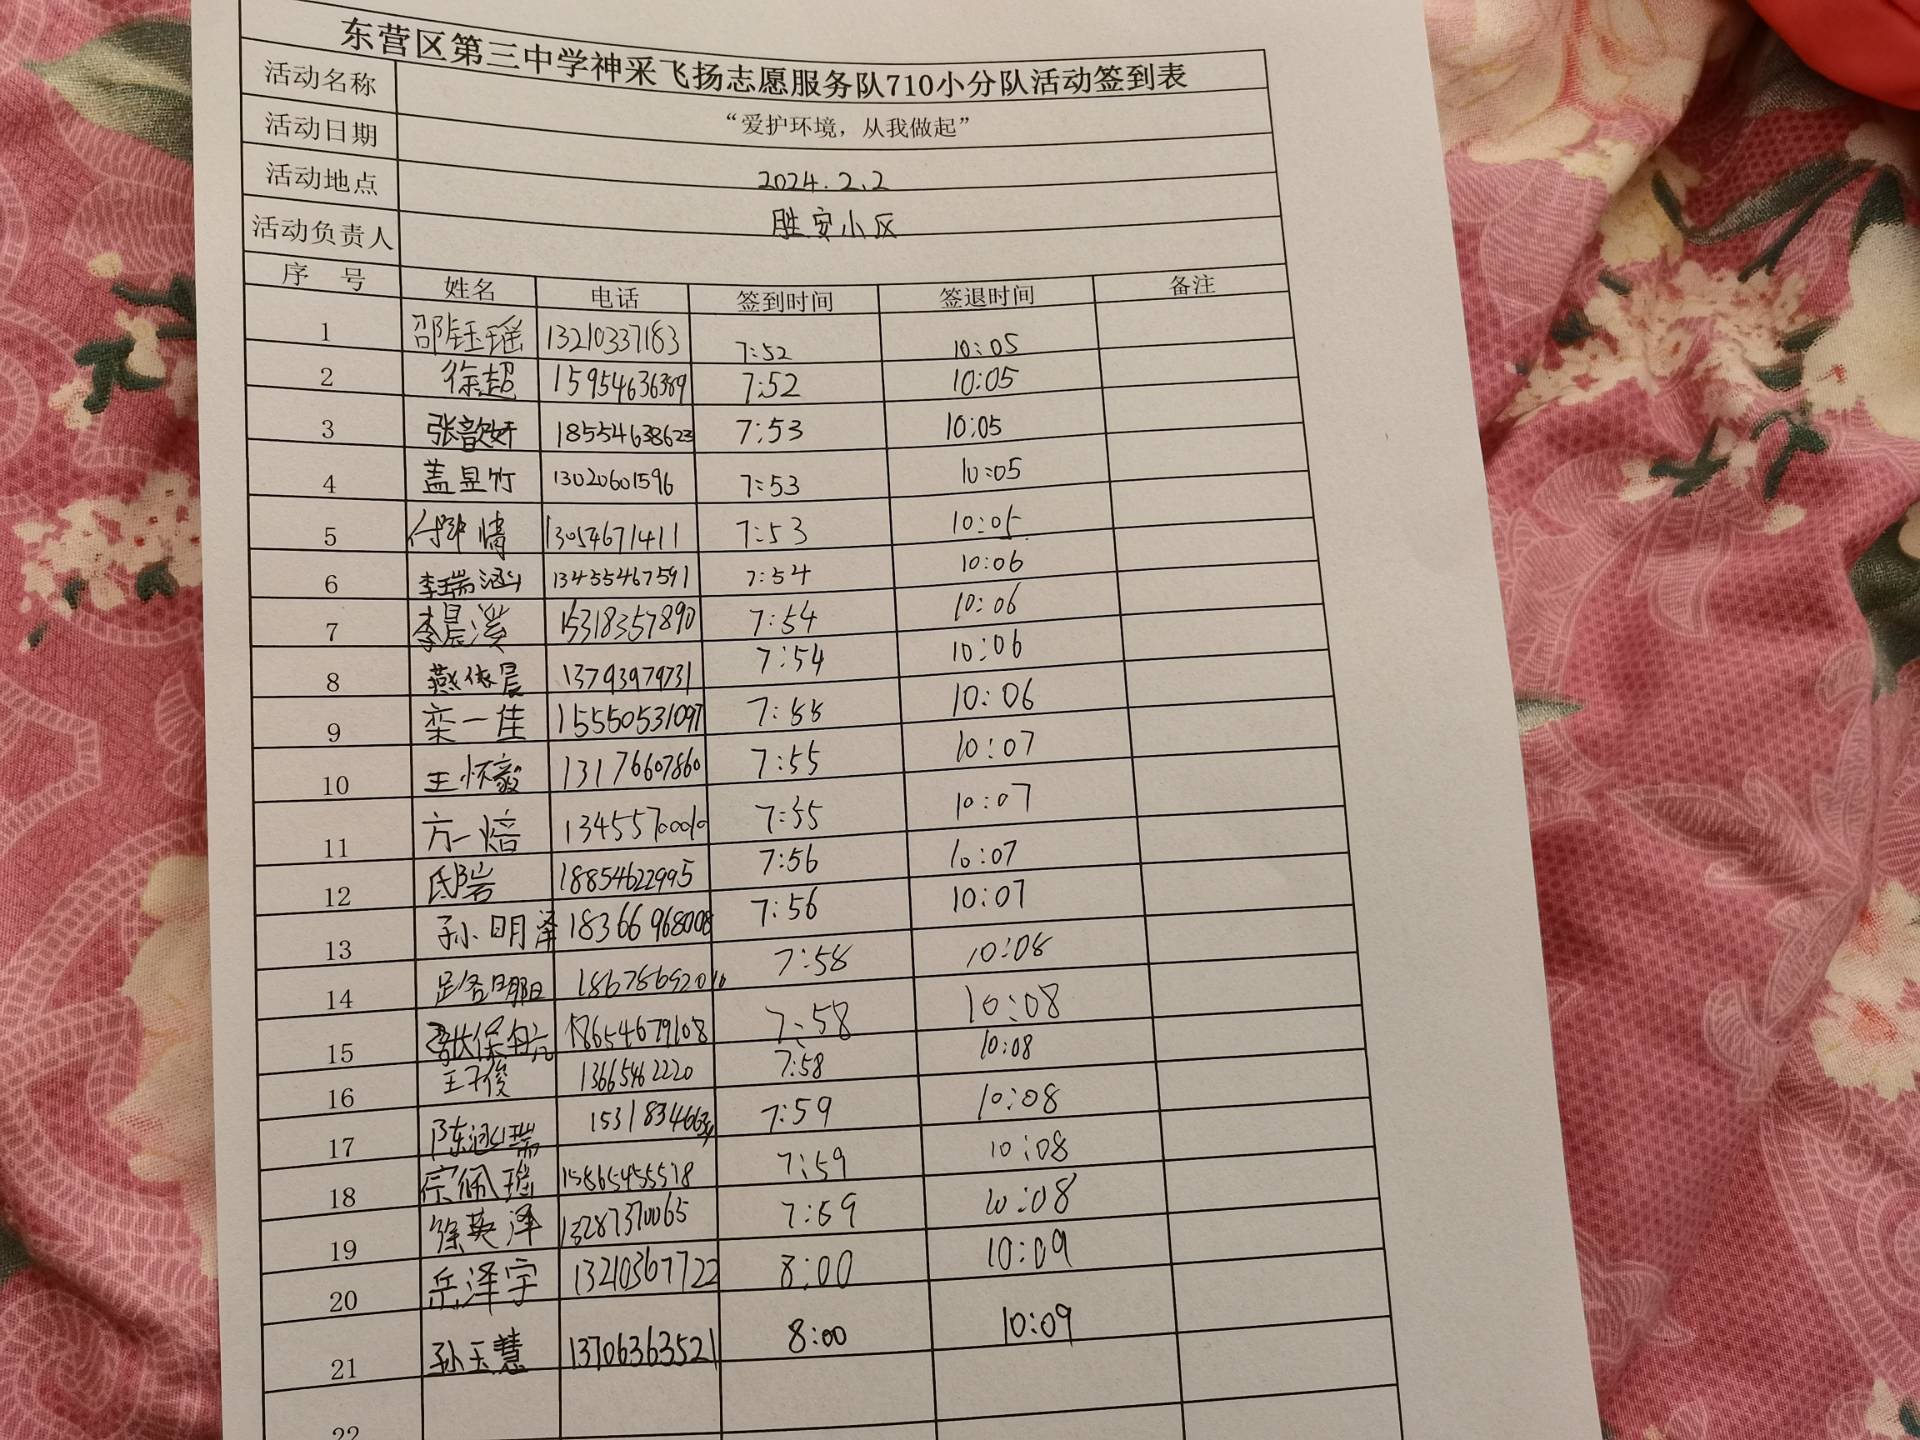 东营区第三中学神采飞扬志愿服务队710小分队活动签到表
活动名称 “爱护环境，从我做起”
活动日期 2024.2.2
活动地点 胜安小区
活动负责人
序 号 姓名 电话 签到时间 签退时间 备注
1 邵钰瑶 13210337183 7:52 10:05
2 徐超 15954636389 7:52 10:05
3 张歆妍 18554638623 7:53 10:05
4 盖昱竹 13020601596 7:53 10:05
5 13054671411 7:53 10:05
6 李瑞涵 13455467591 7:54 10:06
7 李晨溪 15318357890 7:54 10:06
8 燕依晨 13793979731 7:54 10:06
9 栾一佳 15550531097 7:55 10:06
10 王怀毅 13176607860 7:55 10:07
11 方一焙 13455700010 7:55 10:07
12 18854622995 7:56 10:07
13 孙明泽 18366968008 7:56 10:07
14 7:58 10:08
15 18654679108 7:58 10:08
16 王子俊 13665462220 7:58 10:08
17 陈涵瑞 7:59 10:08
18 宗佩瑶 15865455518 7:59 10:08
19 徐英泽 13287370065 7:59 10:08
20 岳泽宇 13210367722 8:00 10:09
21 孙玉慧 13706363521 8:00 10:09
22